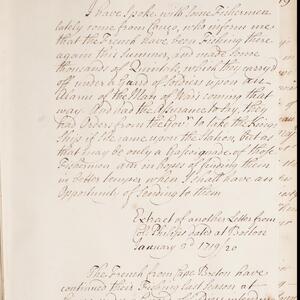 I have Spoke with Some Fishermen
lately come from Canço, who inform me
that the French have been Fishing there
again this Summer, and made Some
thousands of Quintals, which they carryd
off under a Guard of Soldiers upon
Alarm of the Man of Warr's coming that
way. And had the Assurance to Say, they
had Orders from the Govr to take the Kings
Ship if She came upon the Station, but as
that may be only a of those
Fishermen, I am in hopes of finding them
in better temper when I shall have an
Opportunity of Sending to them
Extract of another Letter from
Col Philipps dated at Boston
January 3d 1719/20
The French from Cape Breton have
continued their Fishing last Season at